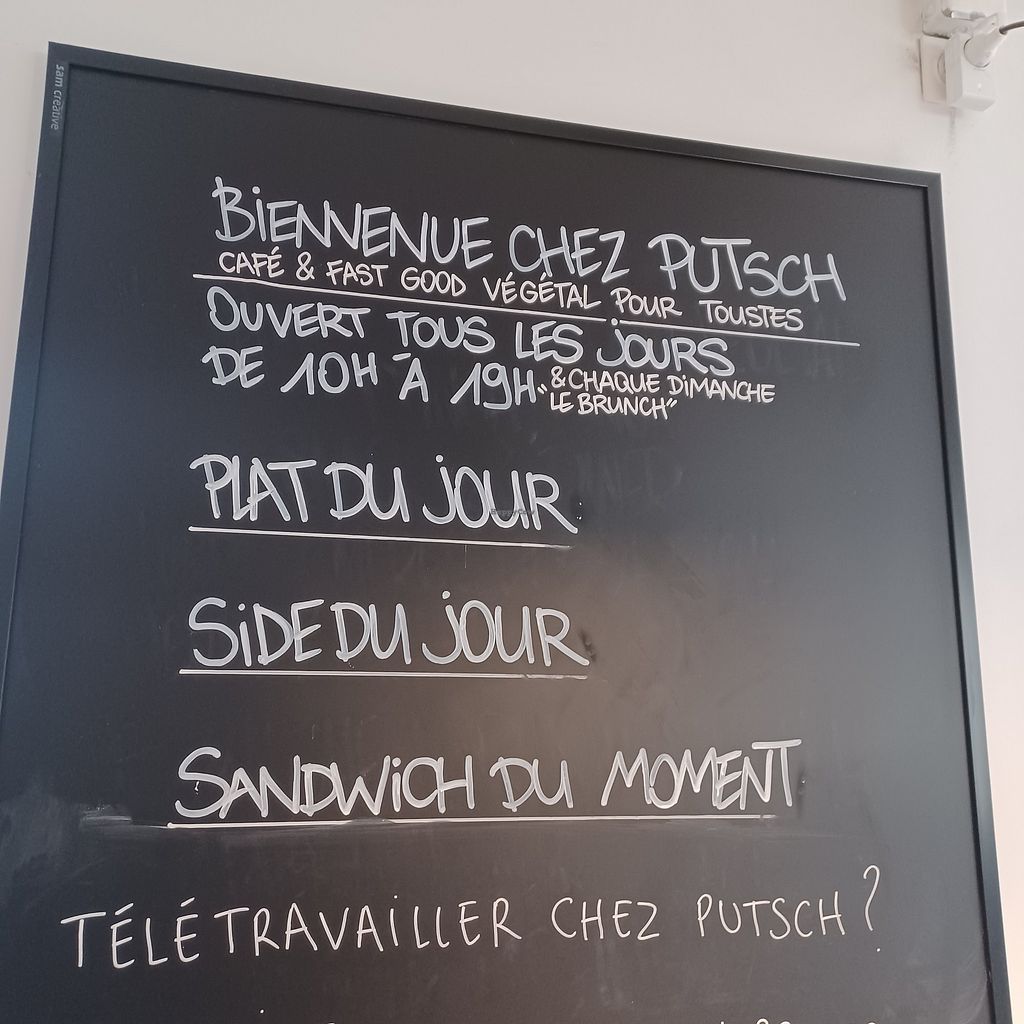 sam creative
BiENVENUE CHEZ PUTSCH
CAFÉ & FAST GOOD VÉGÉTAL POUR TOUSTES
OUVERT TOUS LES JOURS
DE 10H À 19H "& CHAQUE DiMANCHE
LE BRUNCH"
PLAT DU JOUR
SiDE DU JOUR
SANDWiCH DU MOMENT
TÉLÉTRAVAiLLER CHEZ PUTSCH ?